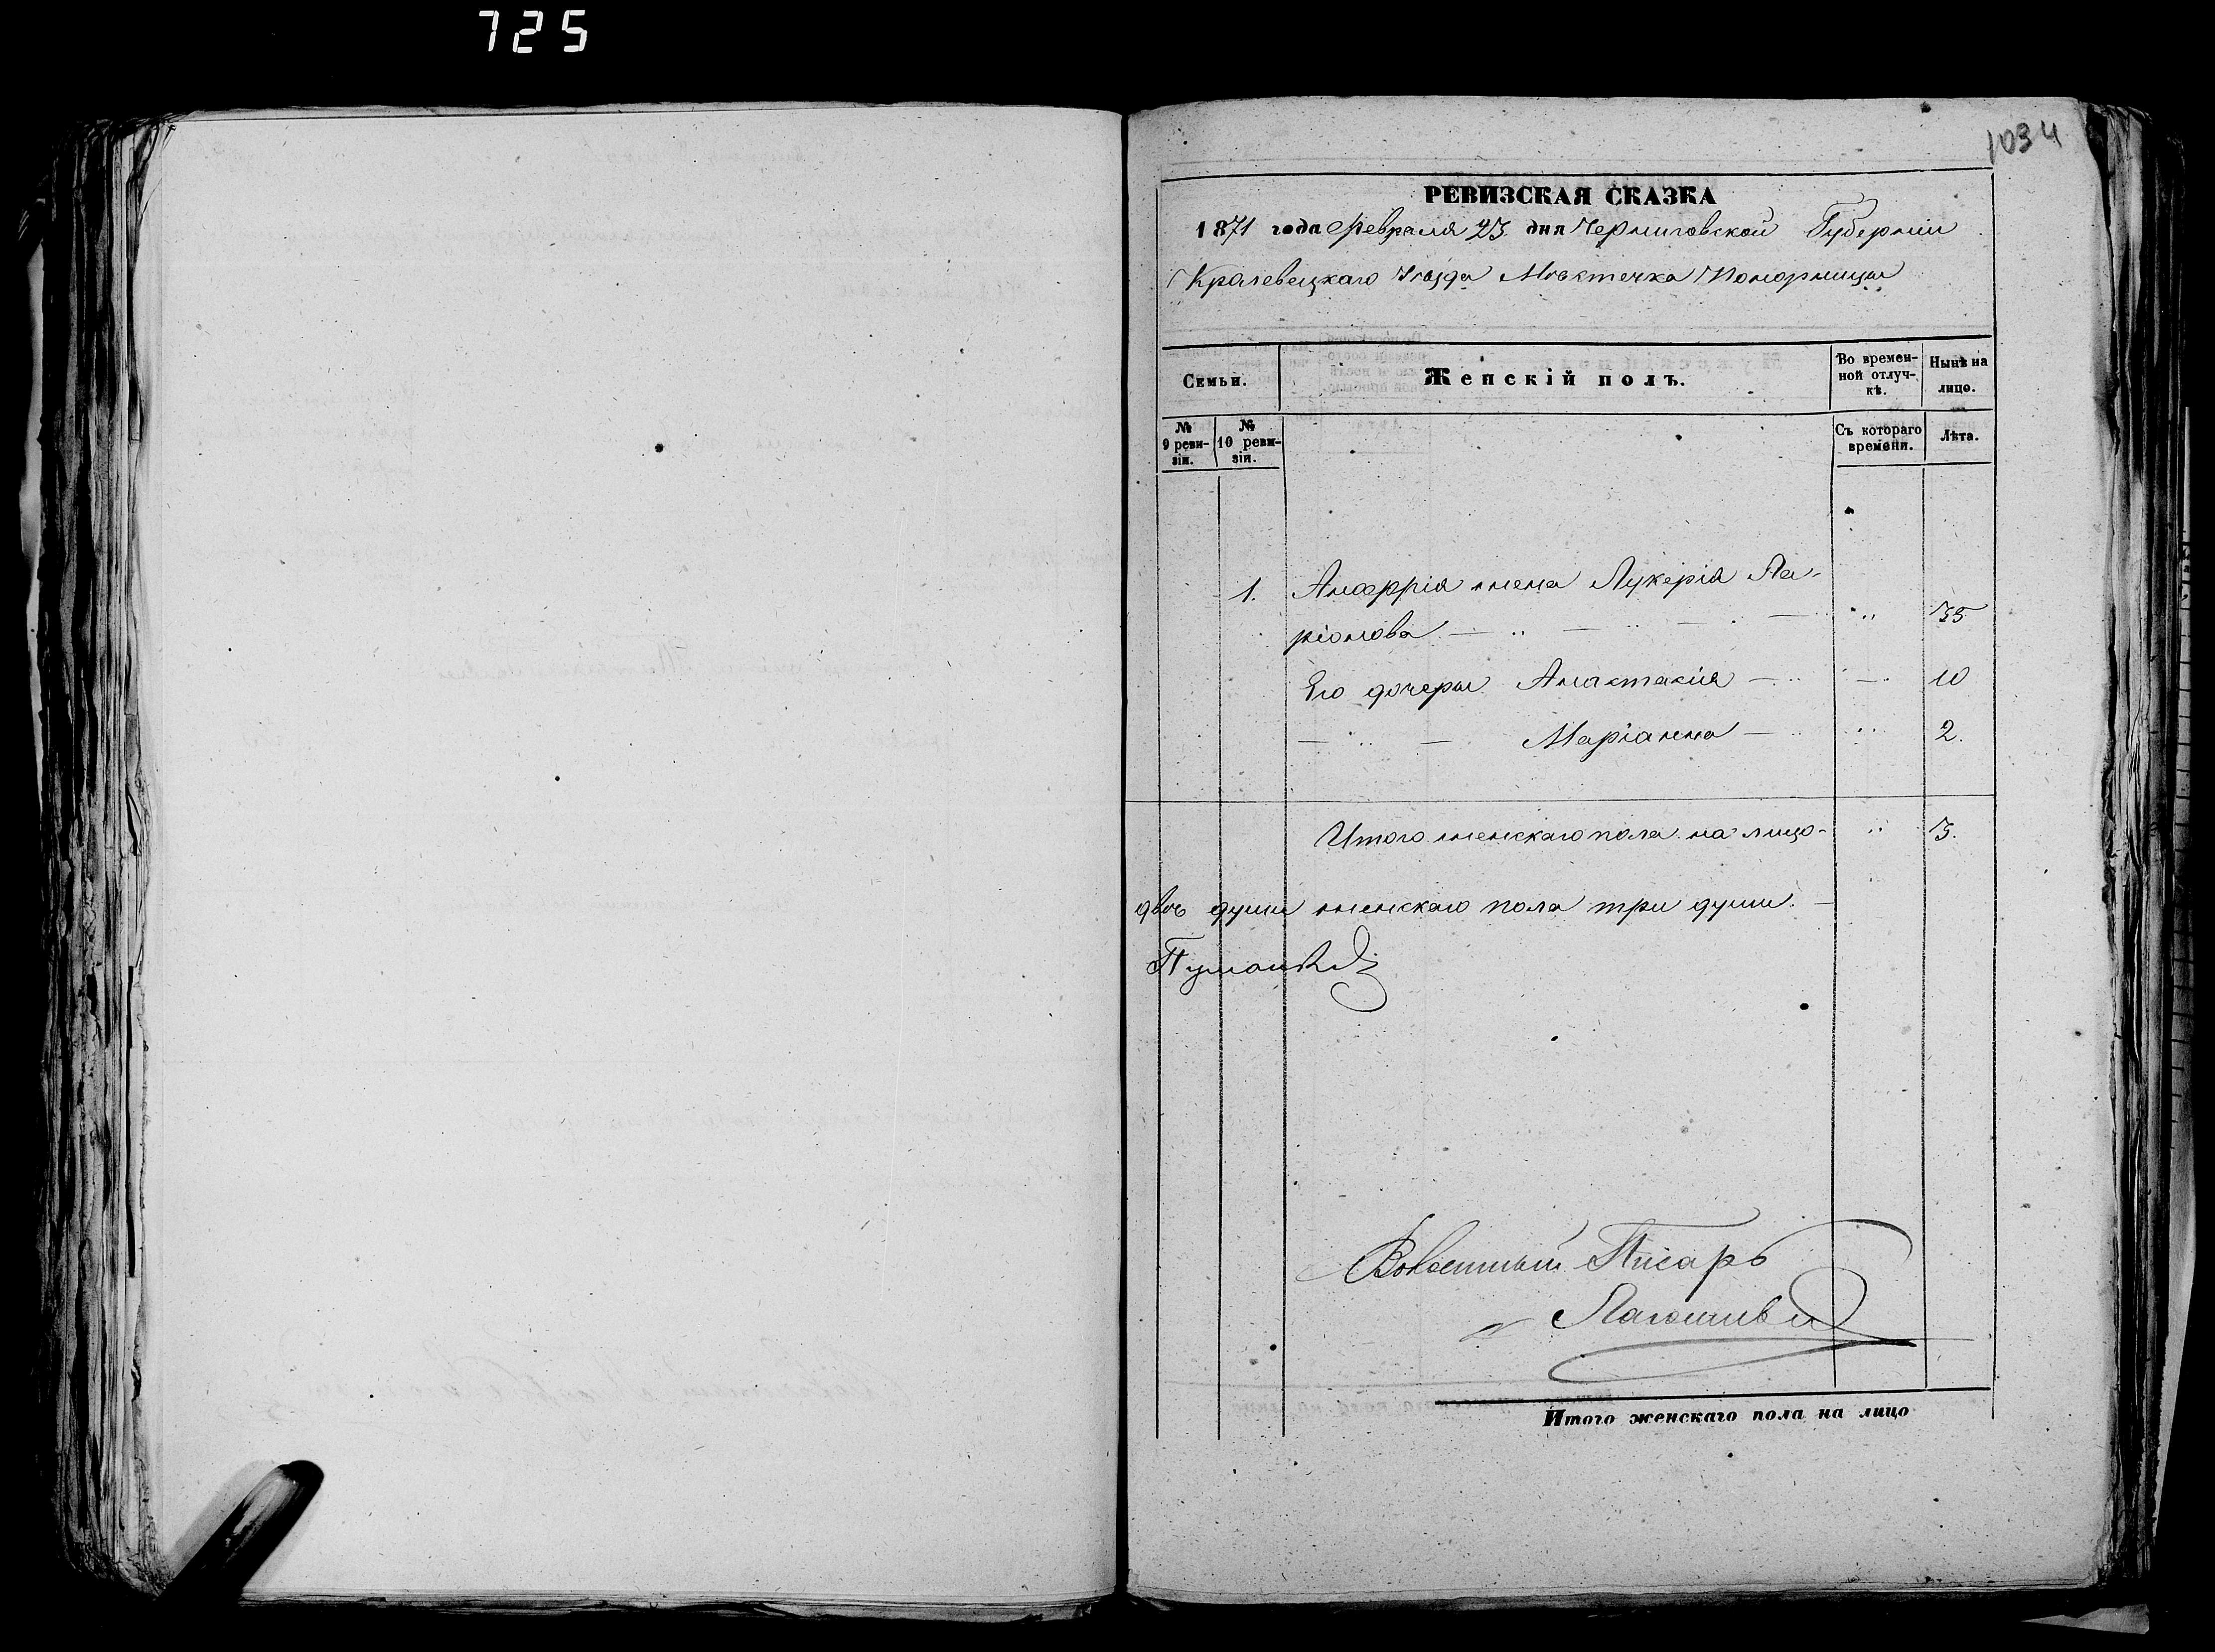 725
1034
РЕВИЗСКАЯ СКАЗКА
1871 года Февраля 23 дня Черниговской Губерніи
Кролевецкаго Уѣзда Мѣстечка Понорницы
Семьи.
Женскій полъ.
Во времен-
ной отлуч-
кѣ.
Нынѣ на
лицо.
№
9 реви-
зіи.
№
10 реви-
зіи.
Съ котораго
времени.
Лѣта.
1. жена Лукерія Ла-
ріонова — „ — „ — „ 35
Его дочеры Анастасія — „ — „ 10
— „ — Маріанна — „ „ 2.
Итого женскаго пола на лицо - „ 3.
двѣ души женскаго пола три души. —
Волостный Писарь
Итого женскаго пола на лицо